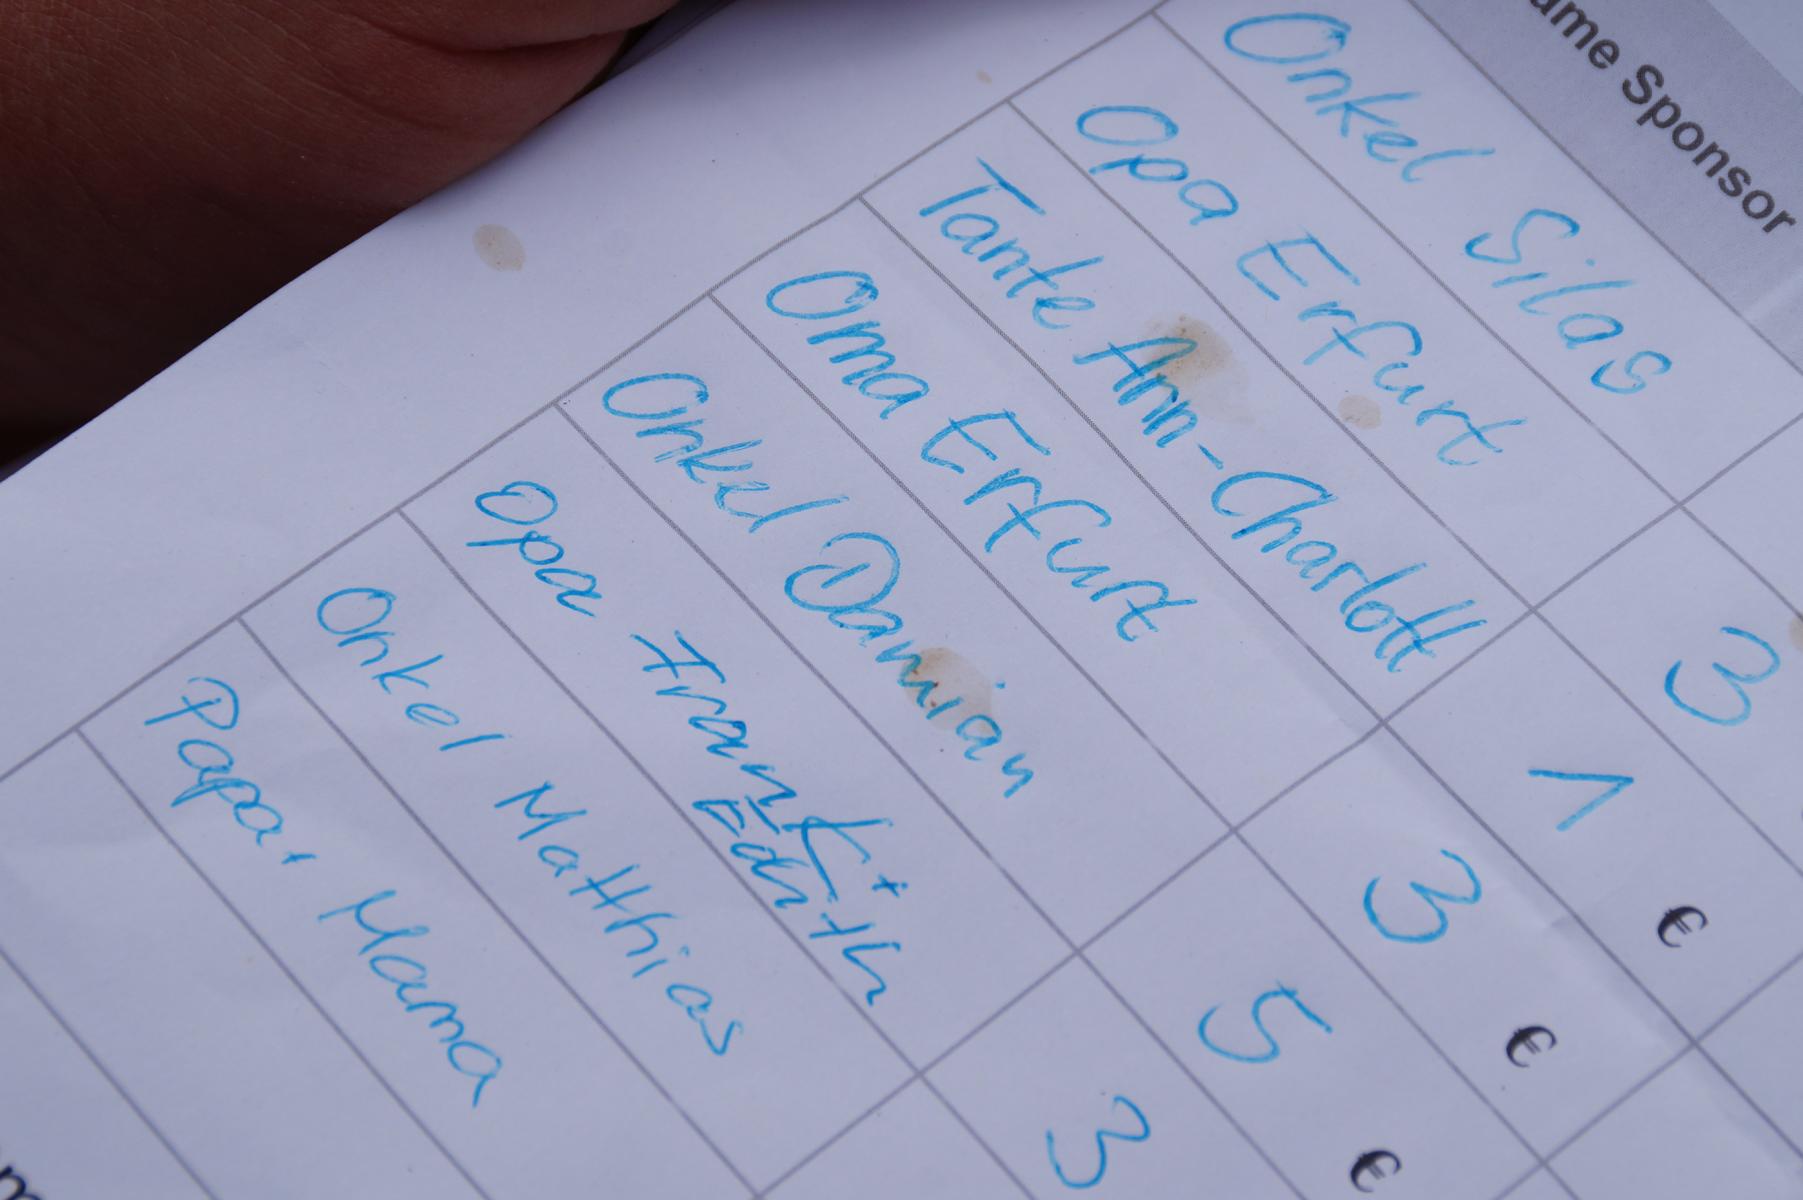 ame Sponsor
Onkel Silas
Opa Erfurt 3
Tante Ann-Charlott 1 €
Oma Erfurt 3 €
Onkel Damian 5 €
Opa Frank + 3
Edith
Onkel Matthias
Papa + Mama